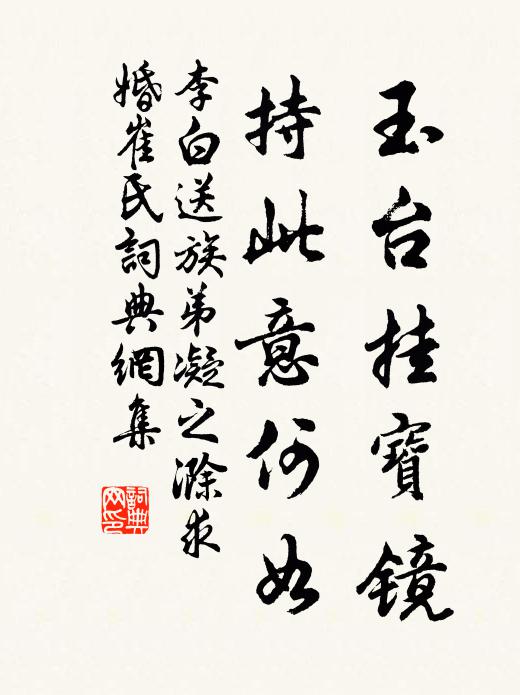 玉台挂寶鏡
持此意何如
李白送族弟凝之滁求
婚崔氏詞典網集
詞典
网印